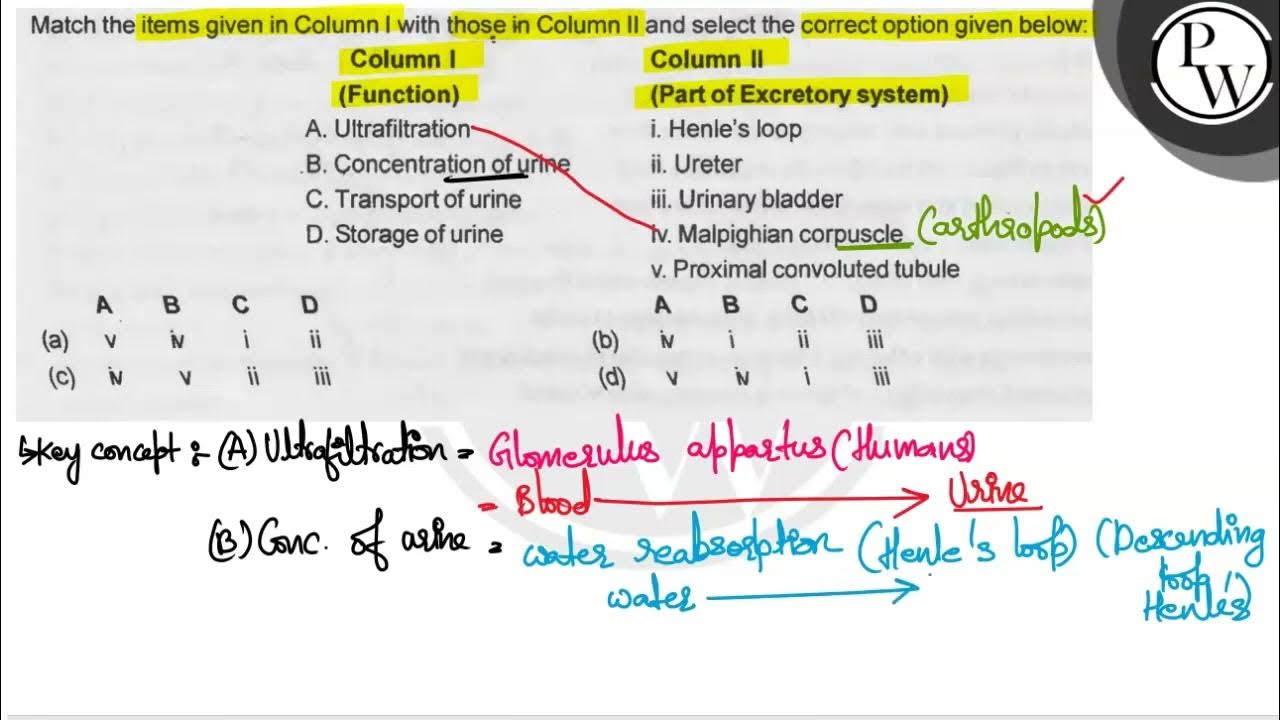 Match the items given in Column I with those in Column II and select the correct option given below:
Column I Column II
(Function) (Part of Excretory system)
A. Ultrafiltration i. Henle's loop
B. Concentration of urine ii. Ureter
C. Transport of urine iii. Urinary bladder
D. Storage of urine iv. Malpighian corpuscle (arthropods)
v. Proximal convoluted tubule
A B C D A B C D
(a) v iv i ii (b) iv i ii iii
(c) iv v ii iii (d) v iv i iii
Key concept :- (A) Ultrafiltration = Glomerulus appartus (Humans)
= Blood Urine
(B) Conc. of urine = water reabsorption (Henle's loop) (Descending
water loop
Henle's)
PW